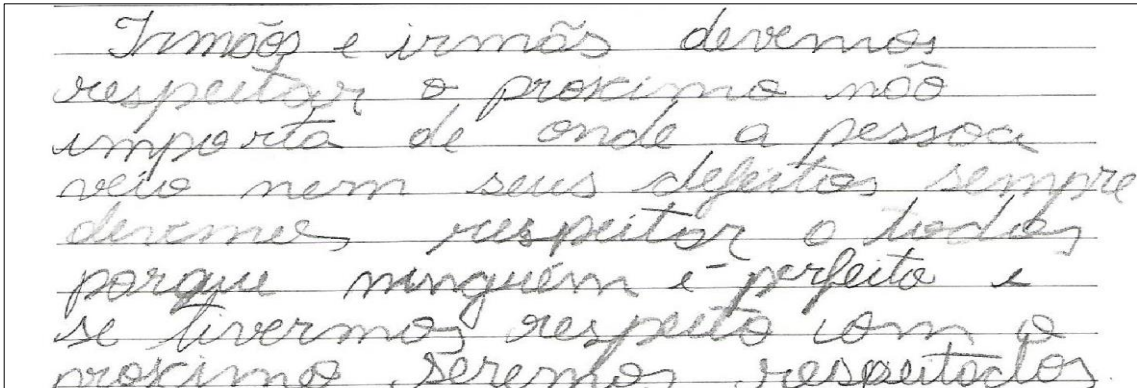 Irmãos e irmãs devemos
respeitar o proximo não
importa de onde a pessoa
veio nem seus defeitos sempre
devemos respeitar o todos
porque ninguém é perfeito e
se tivermos respeito com o
proximo seremos respeitados.